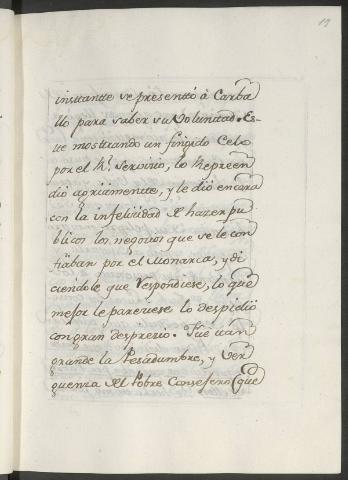 19
insttantte se presenttó à Carba
llo para saber su Voluntad. Es-
tte mosttrando un fingido Celo
por el Rl. Servicio, lo Repreen
dió agriamentte, y le dió en cara
con la infelicidad de hazer pu
blicos los negocios que se le con
fiàban por el Monarca, y di
ciendole que Respondiese, lo que
mejor le pareciese lo despidió
con gran desprecio. Fué ttan
grande la Pesadumbre, y Ver
guenza del Pobre Consejero (que